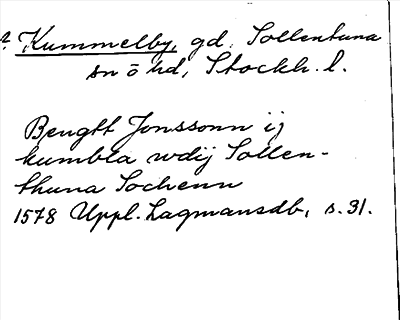 ? Kummelby, gd, Sollentuna
sn ö hd, Stockh. l.
Bengtt Jonssonn ij
kumbla wdij Sollen-
thuna Sochenn
1578 Uppl. Lagmansdb, s. 31.